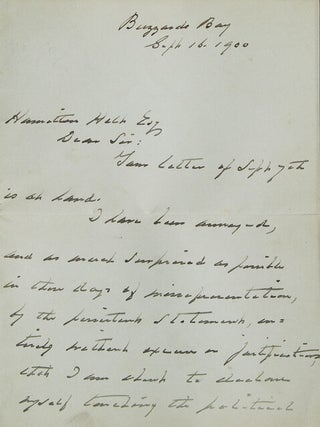 Buzzards Bay
Sept 16. 1900
Hamilton Holt Esq
Dear Sir:
Your letter of Sept 7th
is at hand.
I have been annoyed,
and as much surprised as possible
in these days of misrepresentation,
by the persistent statements, en-
tirely without excuse or justification,
that I am about to declare
myself touching the political